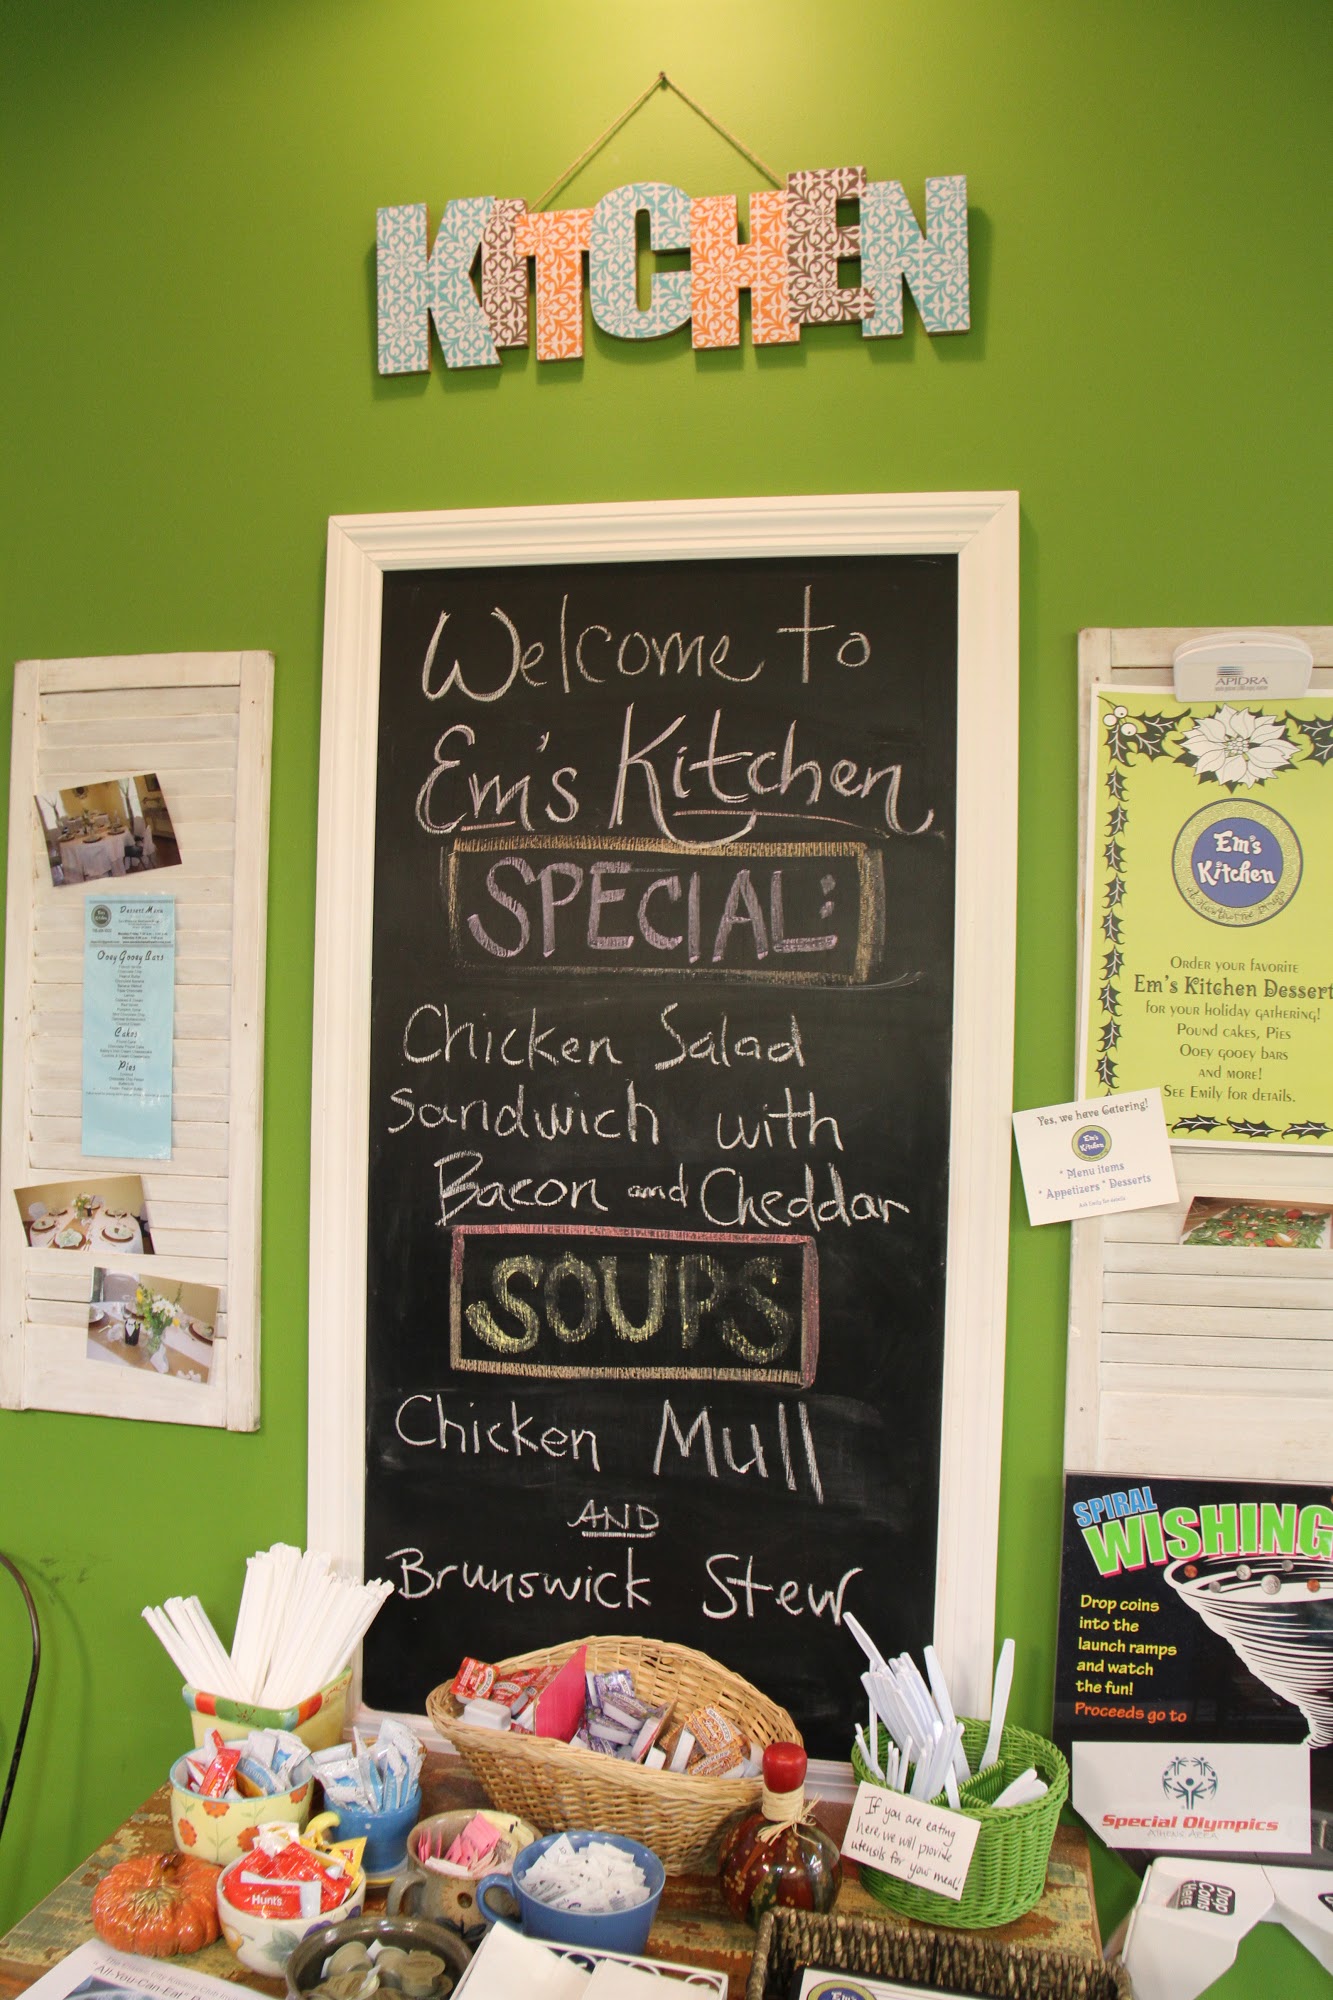 KITCHEN
Welcome to
Em's Kitchen
SPECIAL:
Chicken Salad
Sandwich with
Bacon and Cheddar
SOUPS
Chicken Mull
AND
Brunswick Stew
Dessert Menu
Ooey Gooey Bars
Cakes
Pies
APIDRA
Em's
Kitchen
ORDER YOUR FAVORITE
EM'S KITCHEN DESSERT
FOR YOUR HOLIDAY GATHERING!
POUND CAKES, PIES
OOEY GOOEY BARS
AND MORE!
SEE EMILY FOR DETAILS.
Yes, we have Catering!
Em's
Kitchen
* Menu items
* Appetizers * Desserts
Ask Emily for details
SPIRAL
WISHING
Drop coins
into the
launch ramps
and watch
the fun!
Proceeds go to
Special Olympics
ATHENS AREA
Drop
Coins
Here
If you are eating
here, we will provide
utensils for your meal!
Hunt's
"All-You-Can-Eat"